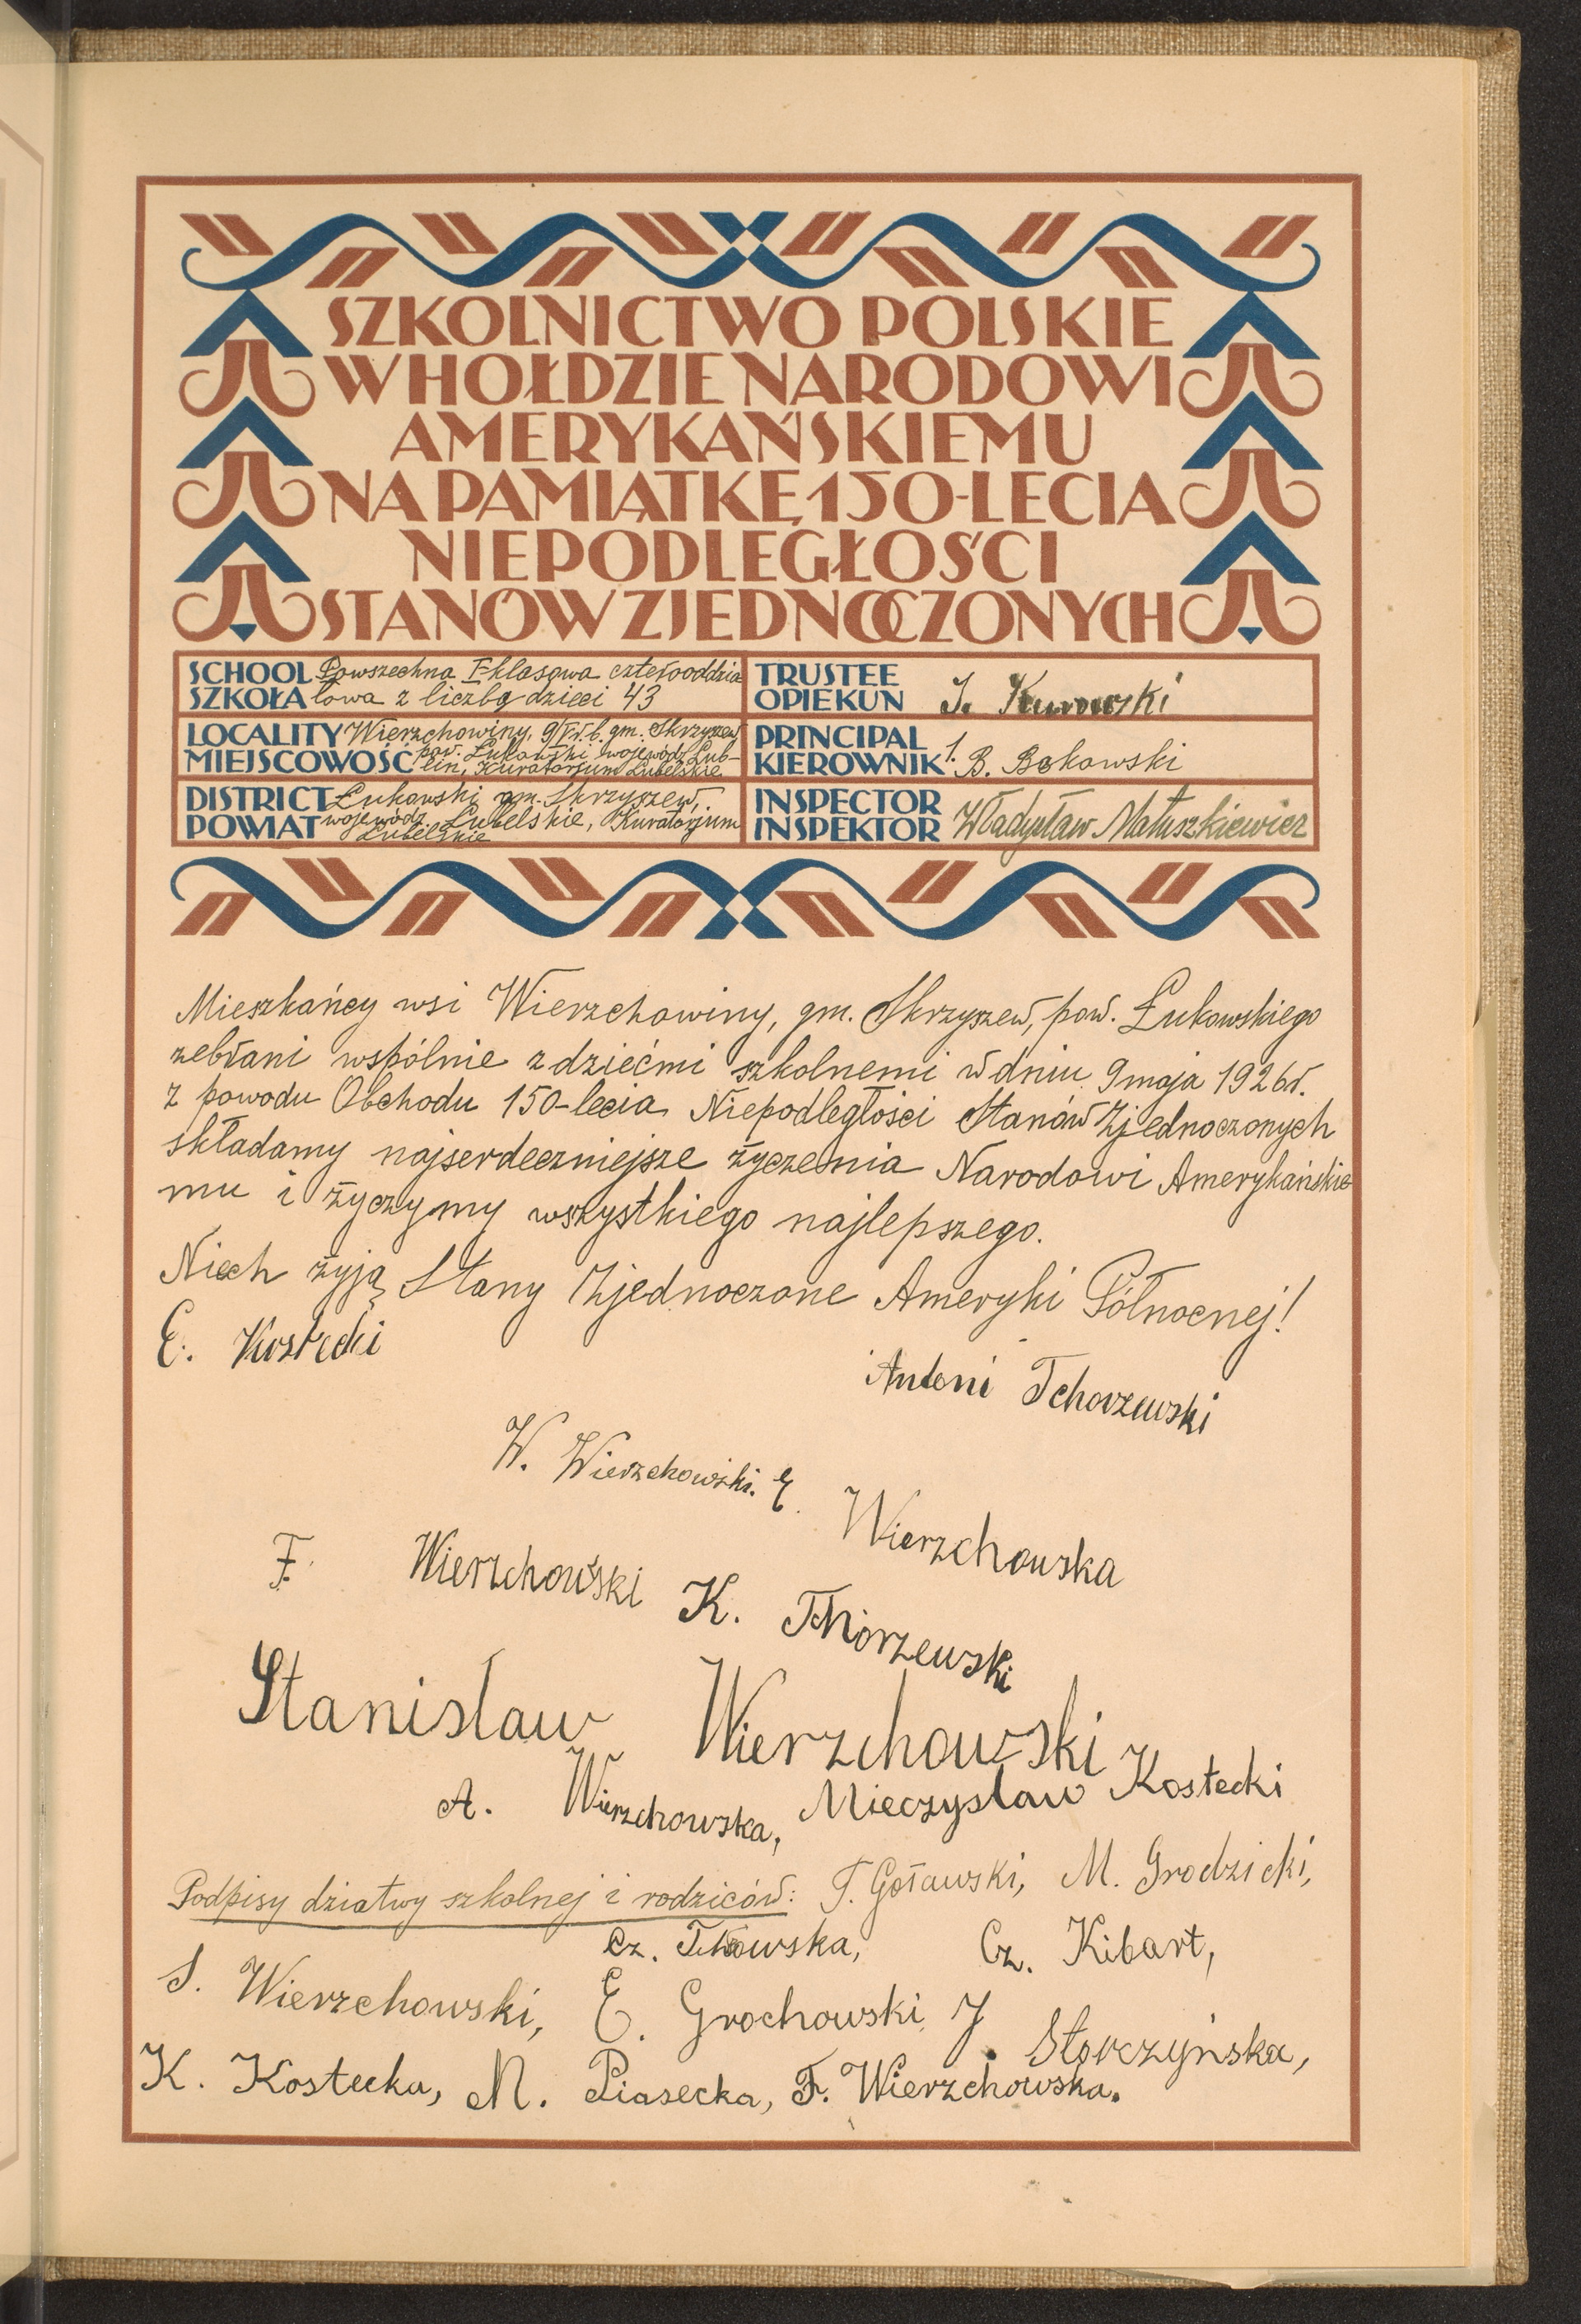 SZKOLNICTWO POLSKIE
W HOŁDZIE NARODOWI
AMERYKAŃSKIEMU
NA PAMIĄTKĘ 150-LECIA
NIEPODLEGŁOŚCI
STANÓW ZJEDNOCZONYCH
SCHOOL Powszechna I-klasowa czterooddzia
SZKOŁA łowa z liczbą dzieci 43
TRUSTEE
OPIEKUN J. Kurowski
LOCALITY Wierzchowiny, 9/V.r.b. gm. Skrzyszew
MIEJSCOWOŚĆ pow. Łukowski wojewódz. Lub-
lin, Kuratorjum Lubelskie
PRINCIPAL
KIEROWNIK B. Bąkowski
DISTRICT Łukowski gm. Skrzyszew,
POWIAT wojewódz. Lubelskie, Kuratorjum
Lubelskie
INSPECTOR
INSPEKTOR Władysław Matuszkiewicz
Mieszkańcy wsi Wierzchowiny, gm. Skrzyszew, pow. Łukowskiego
zebrani wspólnie z dziećmi szkolnemi w dniu 9 maja 1926 r.
z powodu Obchodu 150-lecia Niepodległości Stanów Zjednoczonych
składamy najserdeczniejsze życzenia Narodowi Amerykańskie
mu i życzymy wszystkiego najlepszego.
Niech żyją Stany Zjednoczone Ameryki Północnej!
E. Kostecki
Antoni Tchorzewski
W. Wierzchowski. E. Wierzchowska
F. Wierzchowski K. Tchórzewski
Stanisław Wierzchowski
A. Wierzchowska, Mieczysław Kostecki
Podpisy dziatwy szkolnej i rodziców: T. Goławski, M. Grodzicki,
Cz. Cz. Kibart,
S. Wierzchowski, E. Grochowski, J. Storczyńska,
K. Kostecka, M. Piasecka, F. Wierzchowska.